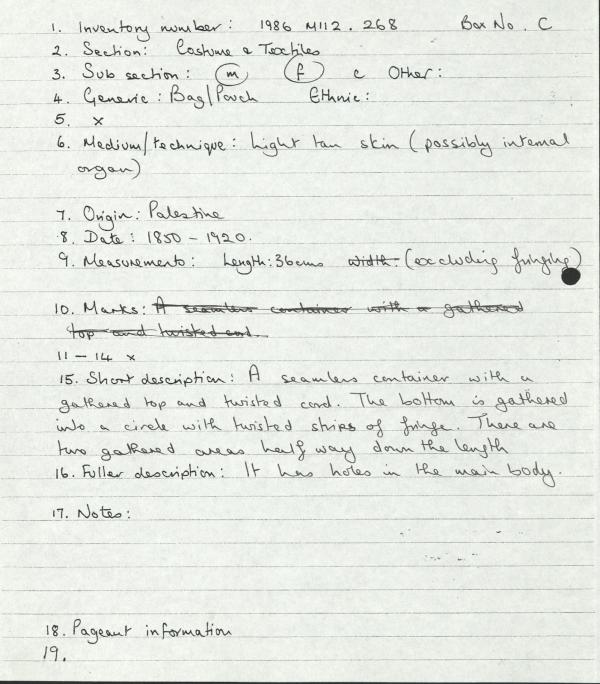 1. Inventory number: 1986 M112.268 Box No. C
2. Section: Costume & Textiles
3. Sub section: m f c Other:
4. Generic: Bag/Pouch Ethnic:
5. x
6. Medium/technique: Light tan skin (possibly internal
organ)
7. Origin: Palestine
8. Date: 1850 - 1920.
9. Measurements: Length: 36cms width: (excluding fringing)
10. Marks: A seamless container with a gathered
top and twisted cord.
11 - 14 x
15. Short description: A seamless container with a
gathered top and twisted cord. The bottom is gathered
into a circle with twisted strips of fringe. There are
two gathered areas half way down the length
16. Fuller description: It has holes in the main body.
17. Notes:
18. Pageant information
19.